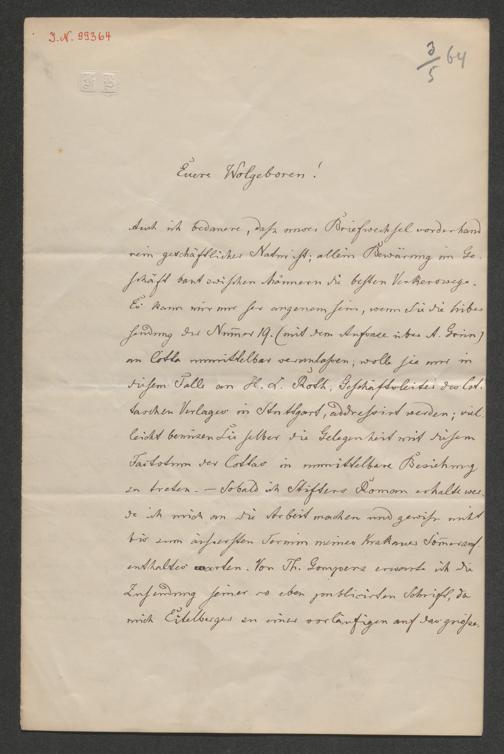 I.N. 99364
3/5 64
Euere Wolgeboren!
Auch ich bedauere, daß unser Briefwechsel vorderhand
rein geschäftlicher Natur ist; allein Bewärung im Ge-
schäft baut zwischen Männern die besten Verkerswege.
Es kann mir nur ser angenem sein, wenn Sie die Ueber-
sendung der Num̅er 19. (mit dem Aufsaze über A. Grün)
an Cotta unmittelbar veranlassen; wolle sie nur in
diesem Falle an H. L. Roth, Geschäftsleiter des Cot-
taschen Verlages in Stuttgart, addressirt werden; viel
leicht benüzen Sie selber die Gelegenheit mit diesem
Factotum der Cottas in unmittelbare Beziehung
zu treten. – Sobald ich Stifters Roman erhalte wer-
de ich mich an die Arbeit machen und gewiß nicht
bis zum äußersten Termin meines Krakauer Som̅erauf
enthaltes warten. Von Th. Gomperz erwarte ich die
Zusendung seiner so eben publicirten Schrift, da
mich Eitelberger zu einer vorläufigen auf das größe-